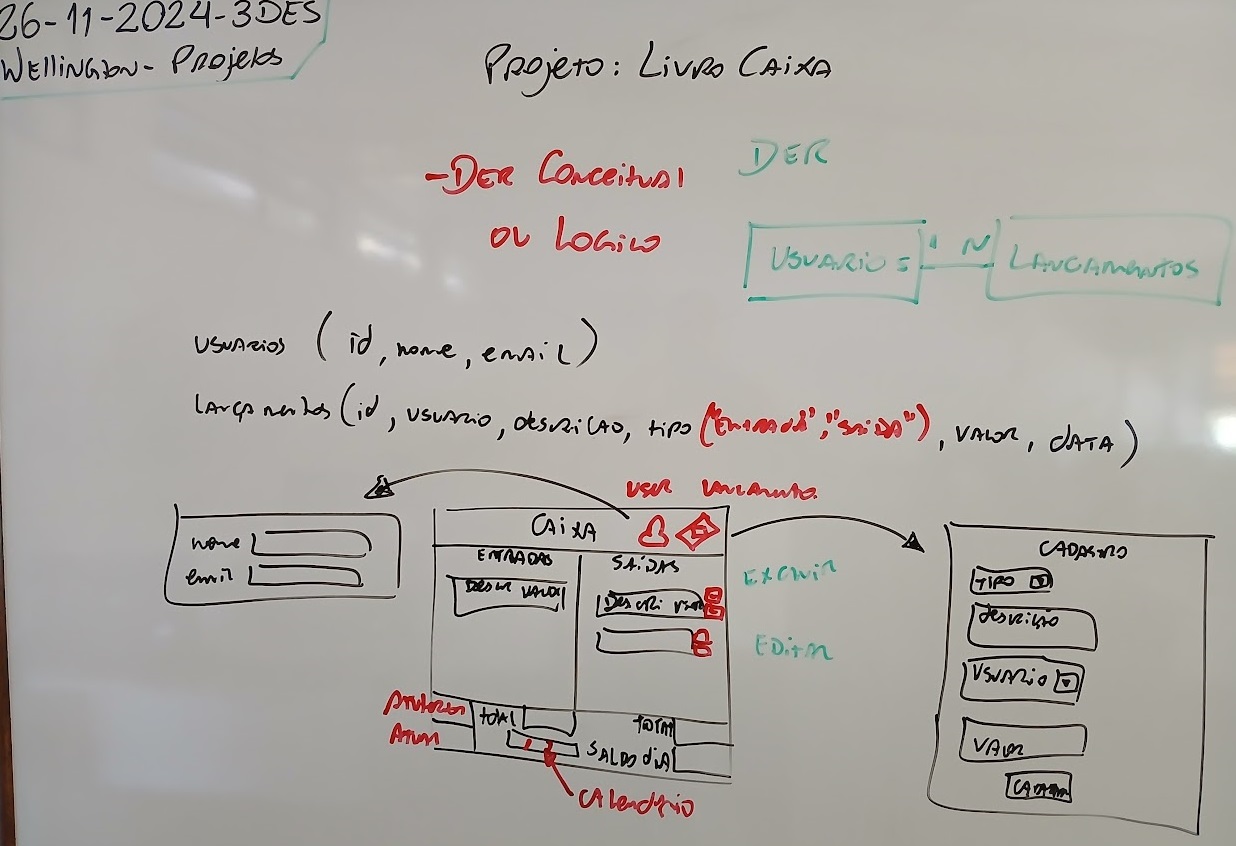 26-11-2024-3DES
WELLINGTON - PROJETOS
PROJETO: LIVRO CAIXA
- DER CONCEITUAL
OU LOGICO
DER
USUARIOS 1 N LANCAMENTOS
USUARIOS (id, nome, email)
Lançamentos (id, USUARIO, DESCRICAO, TIPO ("ENTRADA", "SAIDA"), VALOR, DATA)
USER LANCAMENTO
CAIXA
ENTRADAS SAIDAS
DESCRI VALOR
DESCRI VALOR
nome
email
EXCLUIR
EDITAR
TOTAL TOTAL
ATUAL
SALDO DIA
CALENDÁRIO
CADASTRO
TIPO
DESCRIÇÃO
USUARIO
VALOR